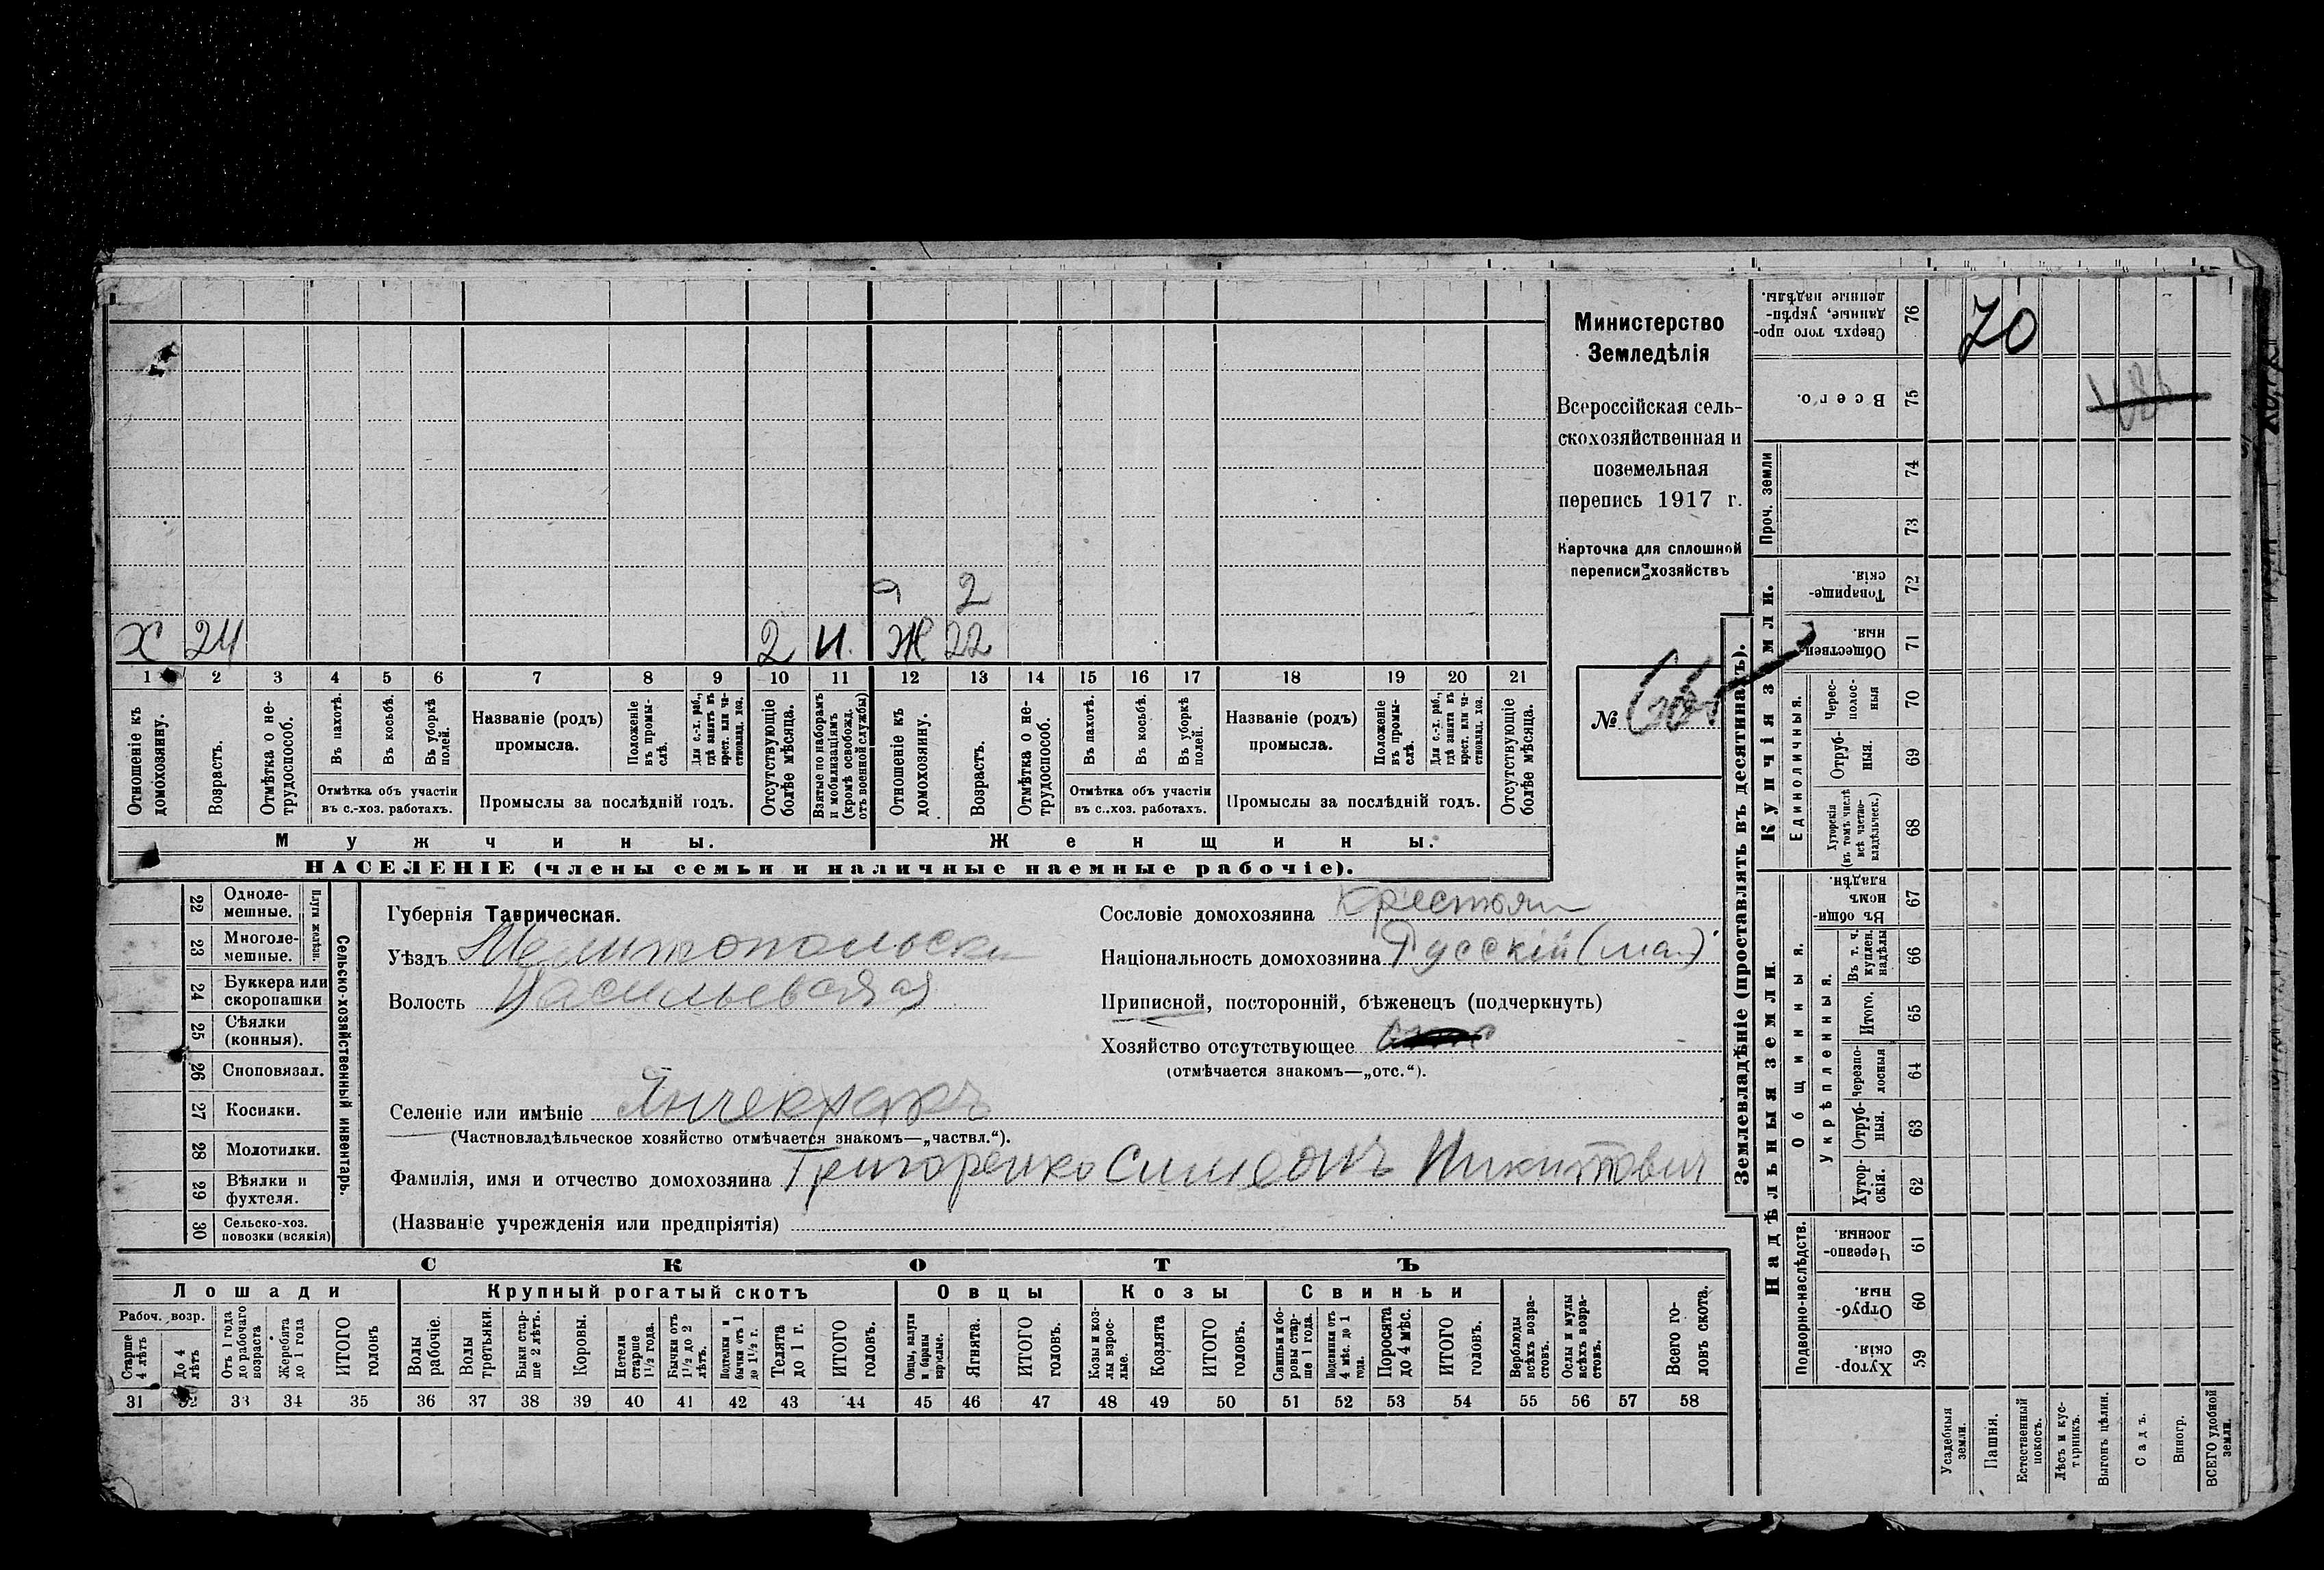 Министерство
Земледѣлія
Всероссійская сель-
скохозяйственная и
поземельная
перепись 1917 г.
Карточка для сплошной
переписи хозяйствъ
№
70
я 2
х 24 2 и. Ж 22
1 2 3 4 5 6 7 8 9 10 11 12 13 14 15 16 17 18 19 20 21
Отношеніе къ домохозяину.
Возрастъ.
Отмѣтка о не-трудоспособ.
Въ пахотѣ.
Въ косьбѣ.
Въ уборкѣ полей.
Отмѣтка объ участіи въ с.-хоз. работахъ.
Названіе (родъ) промысла.
Положеніе въ промы-слѣ.
Для с.-х. раб., гдѣ занятъ въ крест. или ча-стновлад. хоз.
Промыслы за послѣдній годъ.
Отсутствующіе болѣе мѣсяца.
Взятые по наборамъ и мобилизаціямъ (кромѣ освобожд. отъ военной службы)
Отношеніе къ домохозяину.
Возрастъ.
Отмѣтка о не-трудоспособ.
Въ пахотѣ.
Въ косьбѣ.
Въ уборкѣ полей.
Отмѣтка объ участіи въ с.-хоз. работахъ.
Названіе (родъ) промысла.
Положеніе въ промы-слѣ.
Для с.-х. раб., гдѣ занята въ крест. или ча-стновлад. хоз.
Промыслы за послѣдній годъ.
Отсутствующіе болѣе мѣсяца.
Мужчины. Женщины.
НАСЕЛЕНІЕ (члены семьи и наличные наемные рабочіе).
Сельско-хозяйственный инвентарь.
Плуги желѣзн.
22 Одноле-мешные.
23 Многоле-мешные.
24 Буккера или скоропашки
25 Сѣялки (конныя).
26 Сноповязал.
27 Косилки.
28 Молотилки.
29 Вѣялки и фухтеля.
30 Сельско-хоз. повозки (всякія)
Губернія Таврическая.
Уѣздъ Мелитопольски
Волость Васильевская
Сословіе домохозяина Крестьян
Національность домохозяина Русскій (мал.)
Приписной, посторонній, бѣженецъ (подчеркнуть)
Хозяйство отсутствующее
(отмѣчается знакомъ—„отс.“).
Селеніе или имѣніе Янчекракъ
(Частновладѣльческое хозяйство отмѣчается знакомъ—„частвл.“).
Фамилія, имя и отчество домохозяина Григоренко Симеонъ Никитович
(Названіе учрежденія или предпріятія)
СКОТЪ
Лошади Крупный рогатый скотъ Овцы Козы Свиньи
Рабоч. возр.
Старше 4 лѣтъ
До 4 лѣтъ
Отъ 1 года до рабочаго возраста
Жеребята до 1 года
ИТОГО головъ
Волы рабочіе.
Волы третьяки.
Быки стар-ше 2 лѣтъ.
Коровы.
Нетели старше 1½ года.
Бычки отъ 1½ до 2 лѣтъ.
Подтелки и бычки отъ 1 до 1½ г.
Телята до 1 г.
ИТОГО головъ.
Овцы, валухи и бараны взрослые.
Ягнята.
ИТОГО головъ.
Козы и коз-лы взрос-лые.
Козлята
ИТОГО головъ.
Свиньи и бо-ровы стар-ше 1 года.
Подсвинки отъ 4 мѣс. до 1 года.
Поросята до 4 мѣс.
ИТОГО головъ.
Верблюды всѣхъ возра-стовъ.
Ослы и мулы всѣхъ возра-стовъ.
Всего го-ловъ скота.
31 32 33 34 35 36 37 38 39 40 41 42 43 44 45 46 47 48 49 50 51 52 53 54 55 56 57 58
Землевладѣніе (проставлять въ десятинахъ).
Купчія земли.
Надѣльныя земли.
Сверхъ того про-данные, укрѣп-ленные надѣлы. 76
Всего. 75
Проч. земли 74 73
Товарище-скія. 72
Обществен-ныя. 71
Единоличныя.
Черес-полос-ныя 70
Отруб-ныя. 69
Хуторскія (въ томъ числѣ всѣ частно-владѣльческ.) 68
Общинныя.
Въ общи-номъ владѣн. 67
Укрѣпленныя.
Въ т. ч. куплен. надѣлы 66
Итого. 65
Черезпо-лосныя 64
Отруб-ныя. 63
Хутор-скія. 62
Подворно-наслѣдств.
Черезпо-лосныя 61
Отруб-ныя. 60
Хутор-скія. 59
Усадебныя земли.
Пашня.
Естественный покосъ.
Лѣсъ и кус-тарникъ.
Выгонъ цѣлин.
Садъ.
Виногр.
ВСЕГО удобной земли.